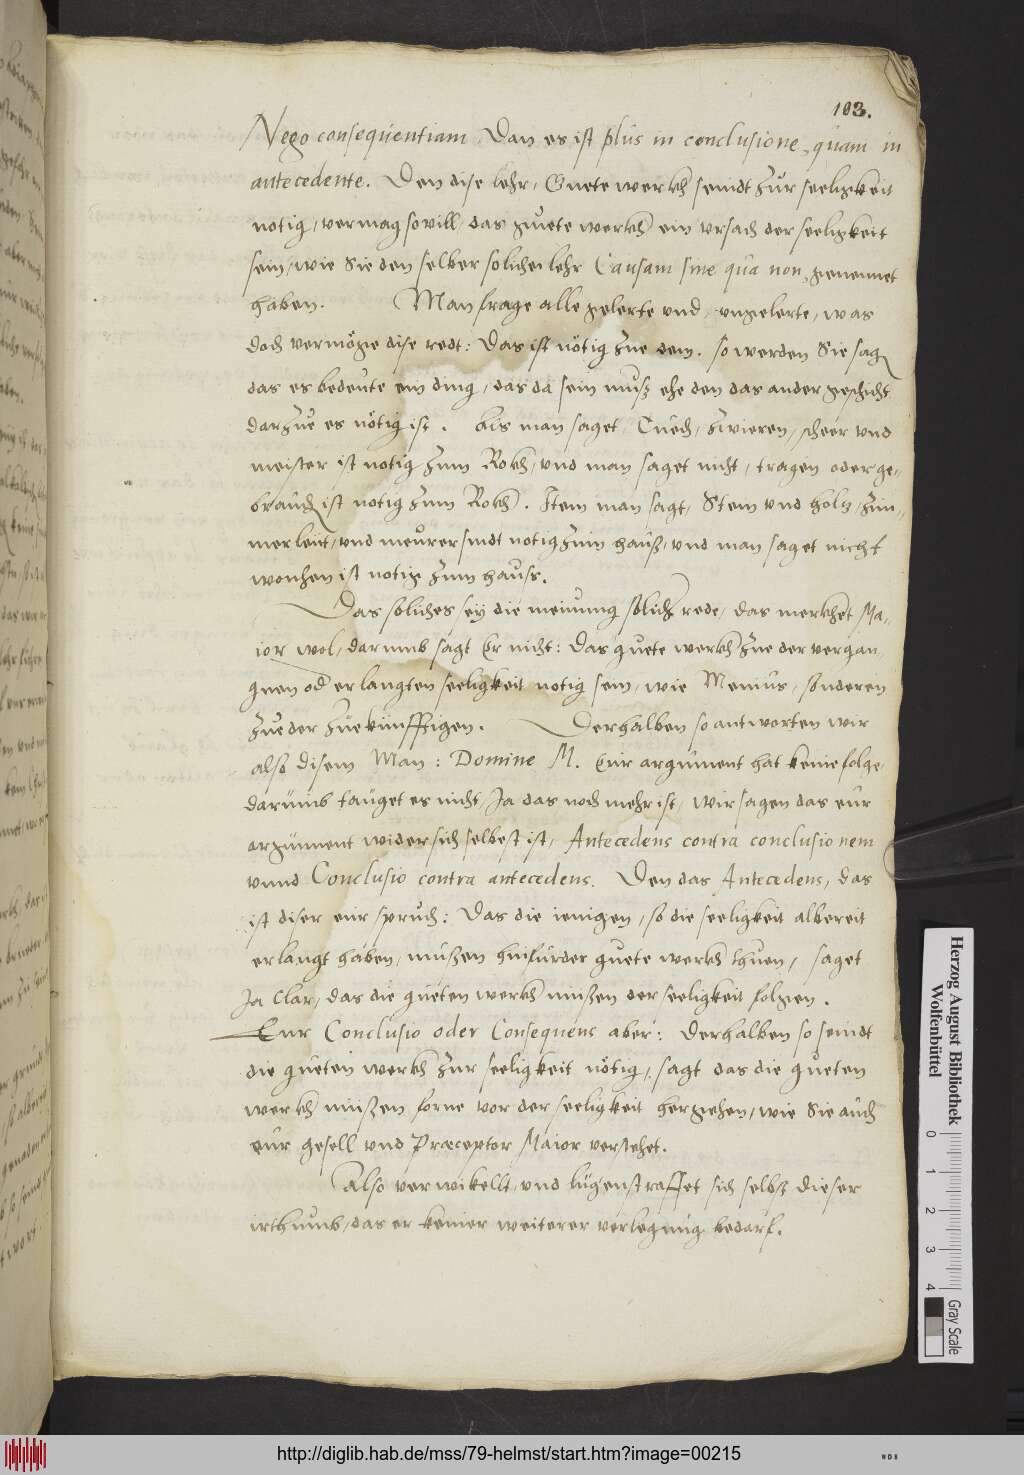 103.
Nego consequentiam. Dan es ist plus in conclusione, quam in
antecedente. Den dise lehr, Guete werckh seindt zur seeligkeit
notig, vermag sovill, das guete werckh ein ursach der seeligkeit
sein, wie Sie den selber solicher lehr Causam sine qua non, genennet
haben. Man frage alle gelerte und ungelerte, was
doch vermöge dise redt: Das ist nötig zue dem. so werden Sie sagen
das es bedeute ein ding, das da sein muß ehe den das ander geschicht
darzue es nötig ist. Als man saget, Tuech, zwieren, scheer und
meister ist notig zum Rockh, und man saget nicht, tragen oder ge-
brauch ist notig zum Rockh. Item man sagt, Stein und holtz, zim-
merleut, und meurer sindt notig zum hauß, und man saget nicht
wonhen ist notig zum hauss.
Das soliches sey die meinung solicher rede, das merckhet Ma-
ior wol, darumb sagt Er nicht: Das guete werckh zue der vergan
gnen oder erlangten seeligkeit notig sein, wie Menius, sonderen
zue der zuekünfftigen. Derhalben so antworten wir
also disem Man: Domine M. Eur argument hat keine folge,
darumb tauget es nicht, Ja das noch mehr ist, wir sagen das eur
argument wider sich selbest ist, Antecedens contra conclusionem
unnd Conclusio contra antecedens. Den das Antecedens, das
ist diser eur spruch: Das die ienigen, so die seeligkeit albereit
erlangt haben, müßen hinfürder guete werckh thuen, saget
Ja Clar, das die gueten werckh müßen der seeligkeit folgen.
Eur Conclusio oder Consequens aber: Derhalben so seindt
die gueten werckh zur seeligkeit nötig, sagt das die gueten
werckh müßen forne vor der seeligkeit hergehen, wie Sie auch
eur gesell und Præceptor Maior verstehet.
Also verwikellt, und lugenstraffet sich selbs dieser
irthumb, das er keiner weiterer verlegung bedarf.
Herzog August Bibliothek
Wolfenbüttel
0 1 2 3 4
Gray Scale
http://diglib.hab.de/mss/79-helmst/start.htm?image=00215